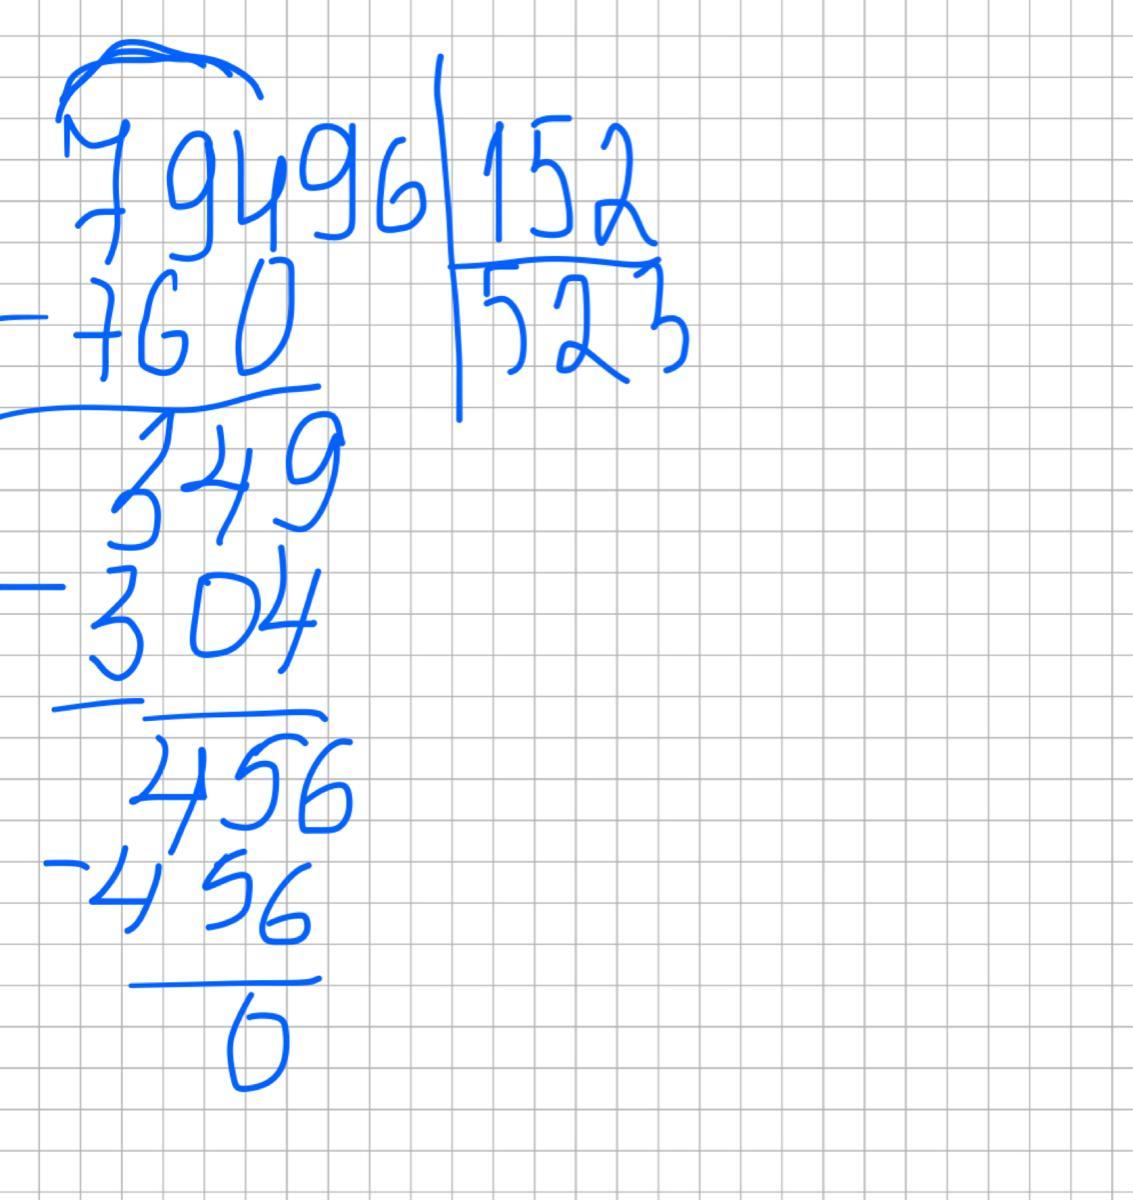 79496 152
- 760 523
349
- 304
456
- 456
0